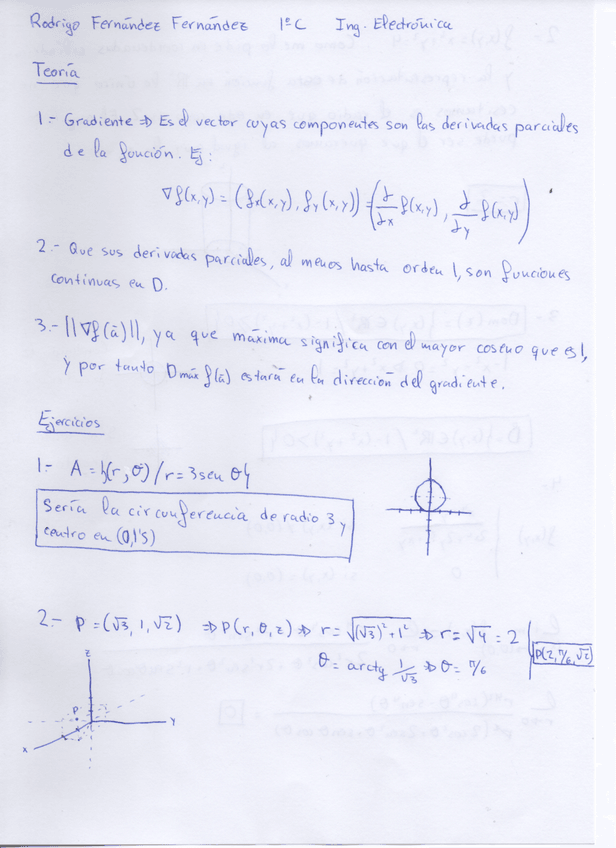 Rodrigo Fernández Fernández 1ºC Ing. Electrónica
Teoría
1.- Gradiente ⇒ Es el vector cuyas componentes son las derivadas parciales
de la función. Ej:
∇f(x,y) = (fx(x,y), fy(x,y)) = (∂/∂x f(x,y), ∂/∂y f(x,y))
2.- Que sus derivadas parciales, al menos hasta orden 1, son funciones
continuas en D.
3.- ||∇f(ā)||, ya que máxima significa con el mayor coseno que es 1,
y por tanto Dmáx f(ā) estará en la dirección del gradiente.
Ejercicios
1- A = {(r, θ) / r = 3 sen θ}
Sería la circunferencia de radio 3 y
centro en (0,1'5)
2.- P = (√3, 1, √2) ⇒ P(r, θ, z) ⇒ r = √((√3)²+1²) ⇒ r = √4 = 2
θ = arctg 1/√3 ⇒ θ = π/6
P(2, π/6, √2)
z
P
x
y